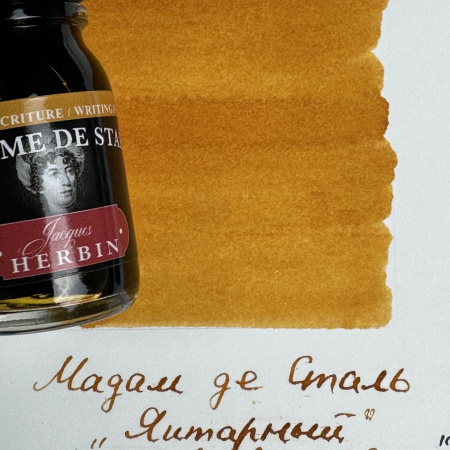 CRITURE / WRITING
ME DE STA
Jacques
HERBIN
Мадам де Сталь
„Янтарный"